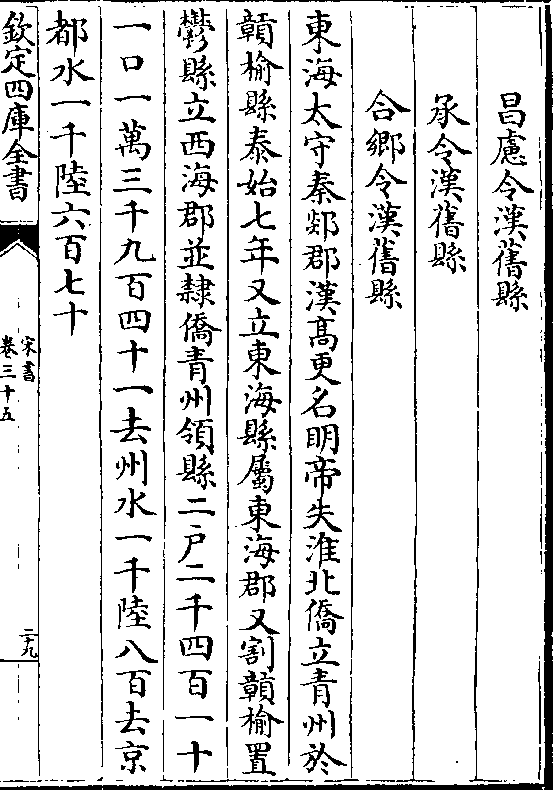 昌慮令漢舊縣
承令漢舊縣
合鄉令漢舊縣
東海太守秦郯郡漢髙更名明帝失淮北僑立青州於
贑榆縣泰始七年又立東海縣屬東海郡又割贑榆置
鬱縣立西海郡並隸僑青州領縣二户二千四百一十
一口一萬三千九百四十一去州水一千陸八百去京
都水一千陸六百七十
欽定四庫全書
宋書
卷三十五
二十九